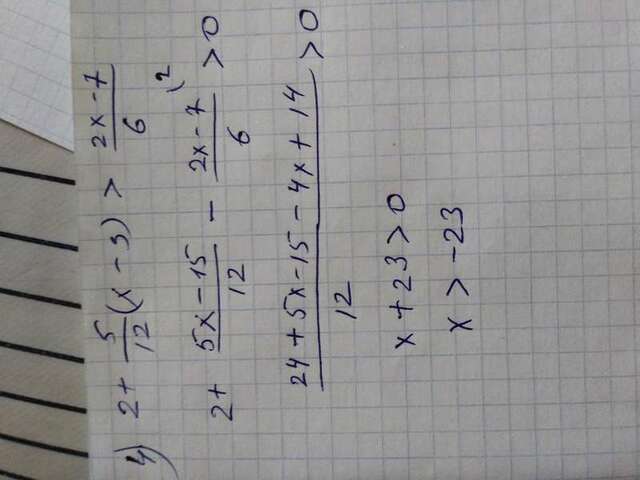 4) 2 + 5/12 (x - 3) > 2x - 7/6
2 + 5x - 15/12 - 2x - 7/6 (2 > 0
24 + 5x - 15 - 4x + 14/12 > 0
x + 23 > 0
x > -23